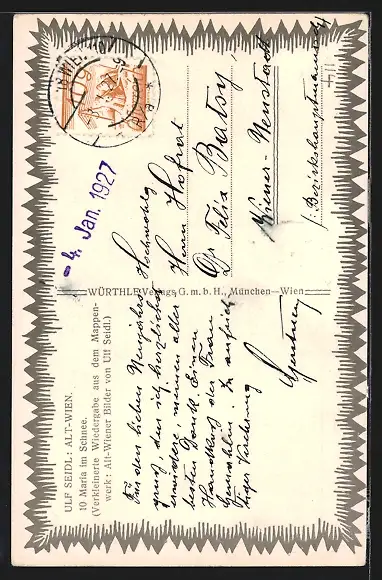 ULF SEIDL: ALT-WIEN.
10 Maria im Schnee.
(Verkleinerte Wiedergabe aus dem Mappen-
werk: Alt-Wiener Bilder von Ulf Seidl.)
Für den lieben Neujahrs-
gruß, den ich herzlichst
erwidere, meinen aller
besten Dank. Einen
Handkuß der Frau
Gemahlin. In aufrich
tiger Verehrung
WÜRTHLE Verlags G. m. b. H., München—Wien
- 4. Jan. 1927
Hochwohlg
Herrn Hofrat
Dr Felix Batsy,
Wiener-Neustadt
/: Bezirkshauptmannsch